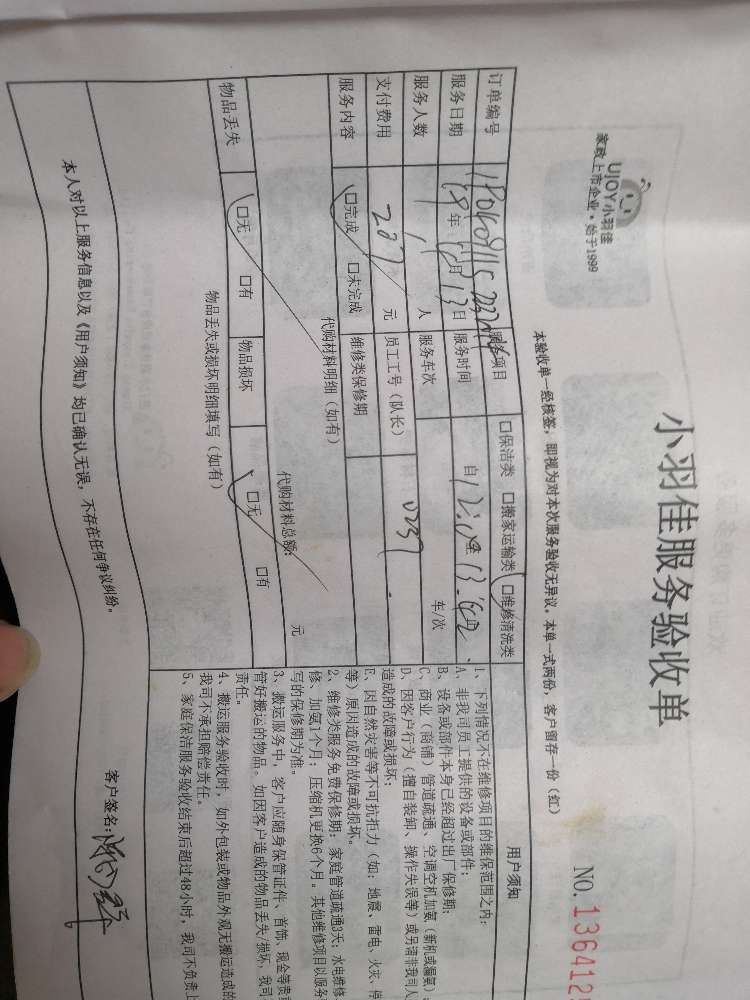 小羽佳服务验收单
UJOY小羽佳
家政上市企业·始于1999
本验收单一经核签，即视为对本次服务验收无异议。本单一式两份，客户留存一份（红）
NO.136412
订单编号
服务项目 □保洁类 □搬家运输类 □维修清洗类
服务日期 年 月 13日 服务时间 自 至
服务人数 1 人 服务车次 车/次
支付费用 237 元 员工工号（队长） 0237
服务内容 □完成 □未完成 维修类保修期
代购材料明细（如有）
代购材料总额： 元
物品丢失 □无 □有 物品损坏 □无 □有
物品丢失或损坏明细填写（如有）
本人对以上服务信息以及《用户须知》均已确认无误，不存在任何争议纠纷。
用户须知
1、下列情况不在维修项目的维保范围之内：
A、非我司员工提供的设备或部件；
B、设备或部件本身已经超过出厂保修期；
C、商业（商铺）管道疏通、空调空机加氨（新机或漏氨）；
D、因客户行为（擅自装卸、操作失误等）或另请非我司人
造成的故障或损坏；
E、因自然灾害等不可抗拒力（如：地震、雷电、火灾、停
等）原因造成的故障或损坏。
2、维修类服务免费保修期：家庭管道疏通3天；水电维修
修、加氨1个月；压缩机更换6个月。其他维修项目以服务
写的保修期为准。
3、搬运服务中，客户应随身保管证件、首饰、现金等贵
管好搬运的物品。如因客户造成的物品丢失/损坏，我司
责任。
4、搬运服务验收时，如外包装或物品外观无搬运造成的
我司不承担赔偿责任。
5、家庭保洁服务验收结束后超过48小时，我司不负责上
客户签名：